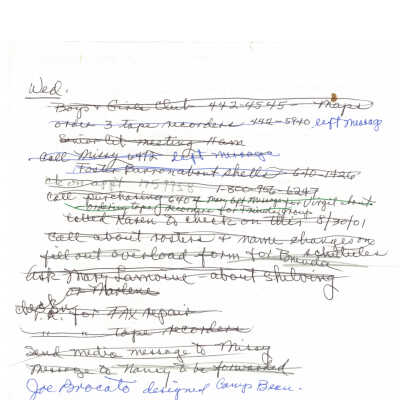 Wed.
Boys + Girls Club 442-4545 - Maps
order 3 tape recorders 442-5940 left message
Senior Cit meeting 11am
Call Missy left message
Foster about shells - 610-1426
ck on appt 1-800-956-6247
call purchasing 6404
Called Karen to check on this 5/30/01
call about rosters & name changes on
fill out overload form for Brenda schedules
Ask Mary about shelving
or Marlene
check on
for FAX repair
" " tape recorders
Send media message to Missy
Message to Nancy to be forwarded
Joe Brocato designed Camp Bear.